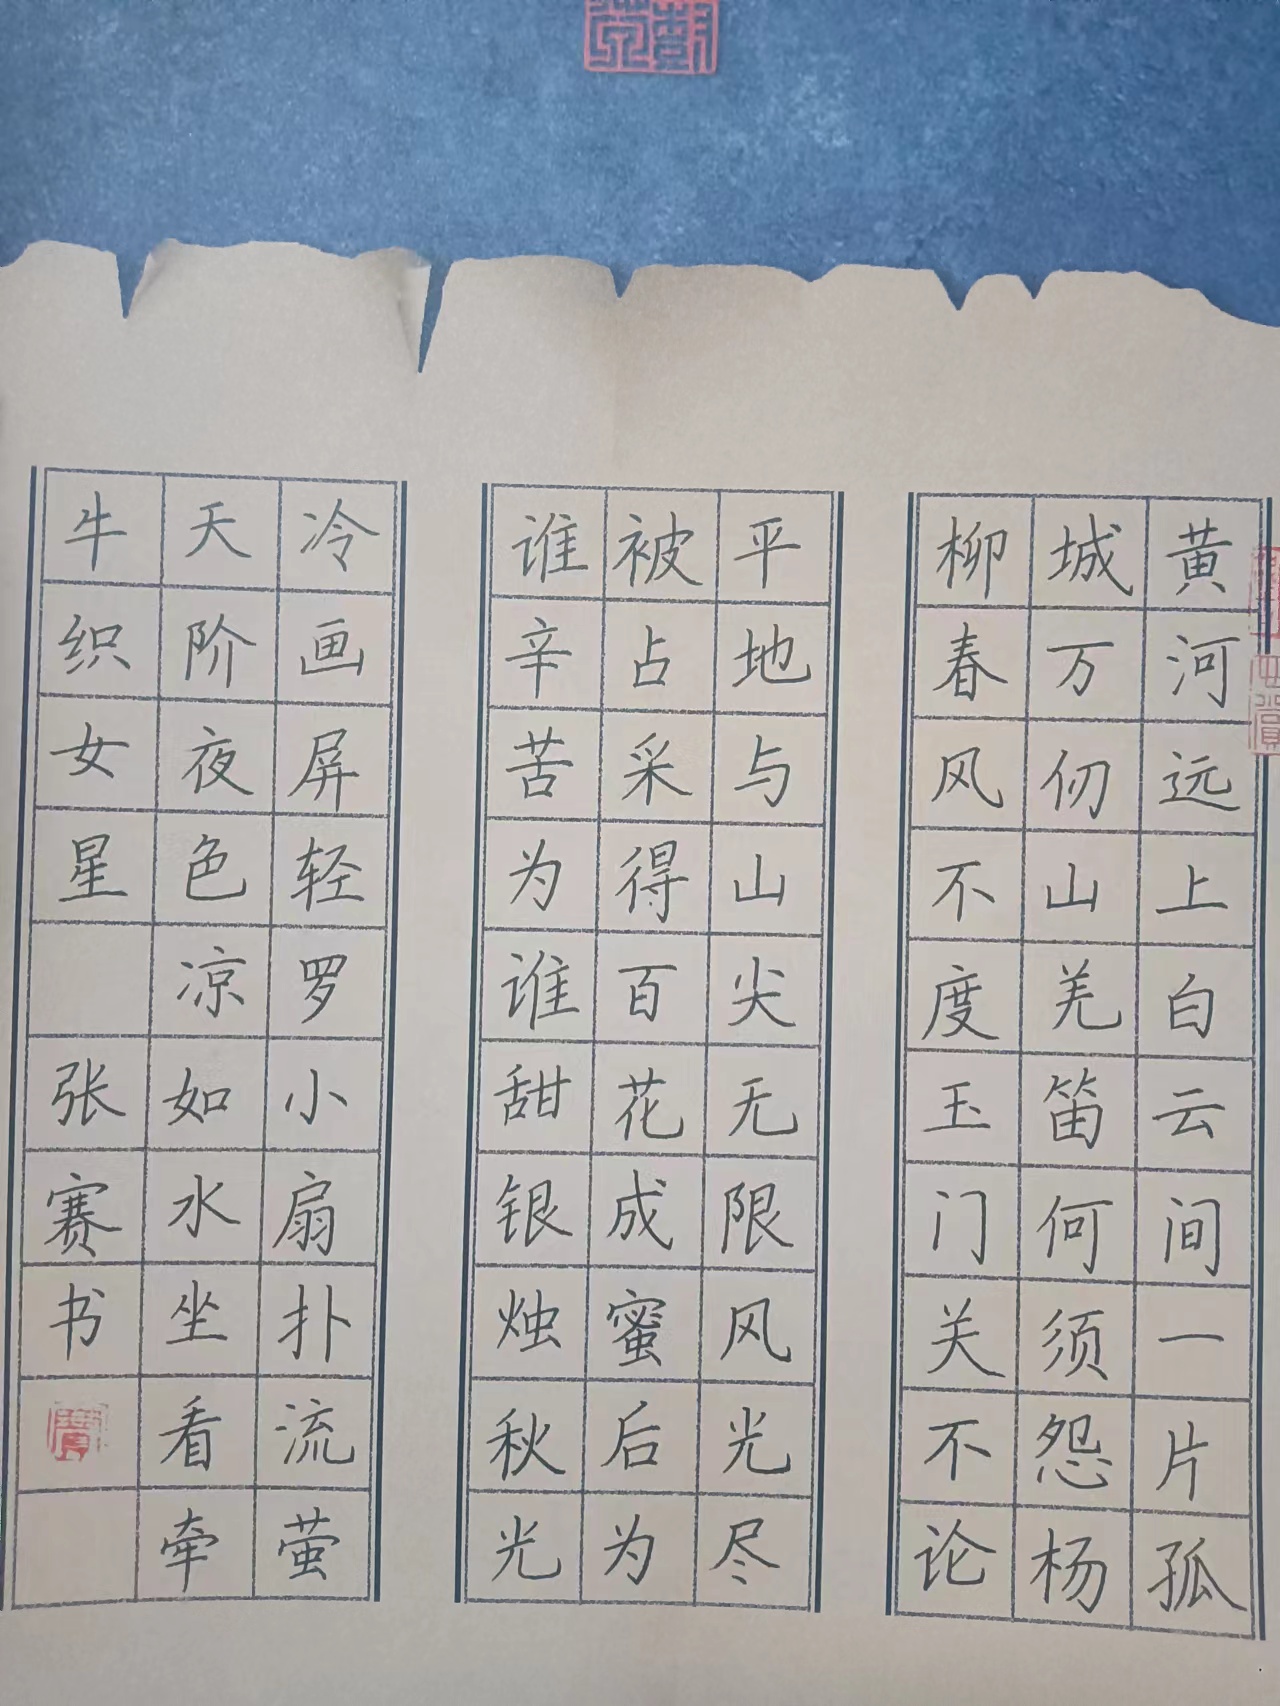 黄河远上白云间一片孤
城万仞山羌笛何须怨杨
柳春风不度玉门关不论
平地与山尖无限风光尽
被占采得百花成蜜后为
谁辛苦为谁甜银烛秋光
冷画屏轻罗小扇扑流萤
天阶夜色凉如水坐看牵
牛织女星 张赛书